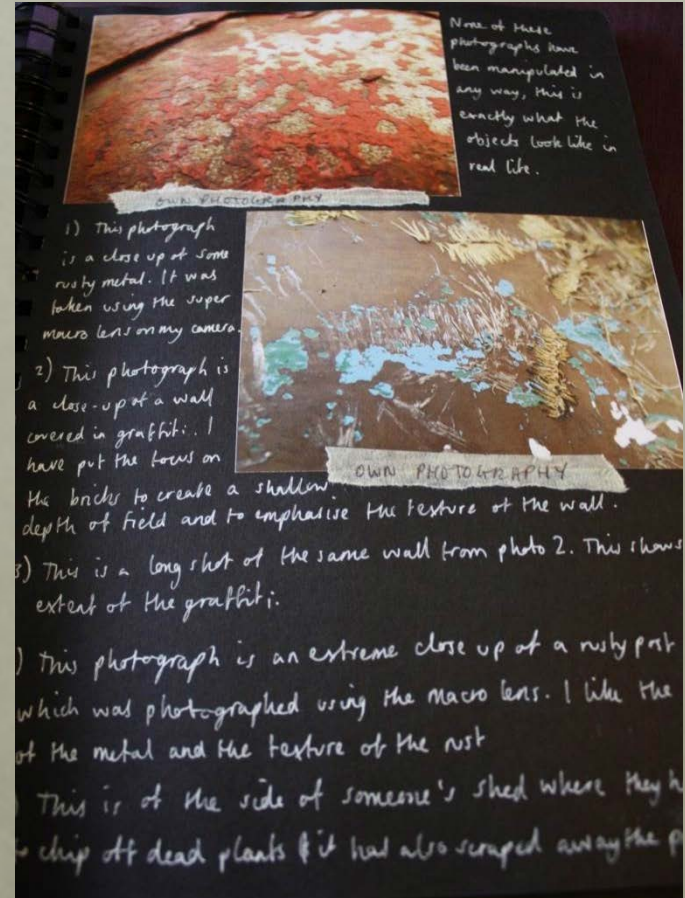 None of these
photographs have
been manipulated in
any way, this is
exactly what the
objects look like in
real life.
OWN PHOTOGRAPHY
1) This photograph
is a close up of some
rusty metal. It was
taken using the super
macro lens on my camera.
2) This photograph is
a close-up of a wall
covered in graffiti. I
have put the focus on
the bricks to create a shallow
depth of field and to emphasise the texture of the wall.
OWN PHOTOGRAPHY
3) This is a long shot of the same wall from photo 2. This shows
extent of the graffiti.
) This photograph is an extreme close up of a rusty post
which was photographed using the macro lens. I like the
of the metal and the texture of the rust
) This is of the side of someone's shed where they
chip off dead plants & it had also scraped away the